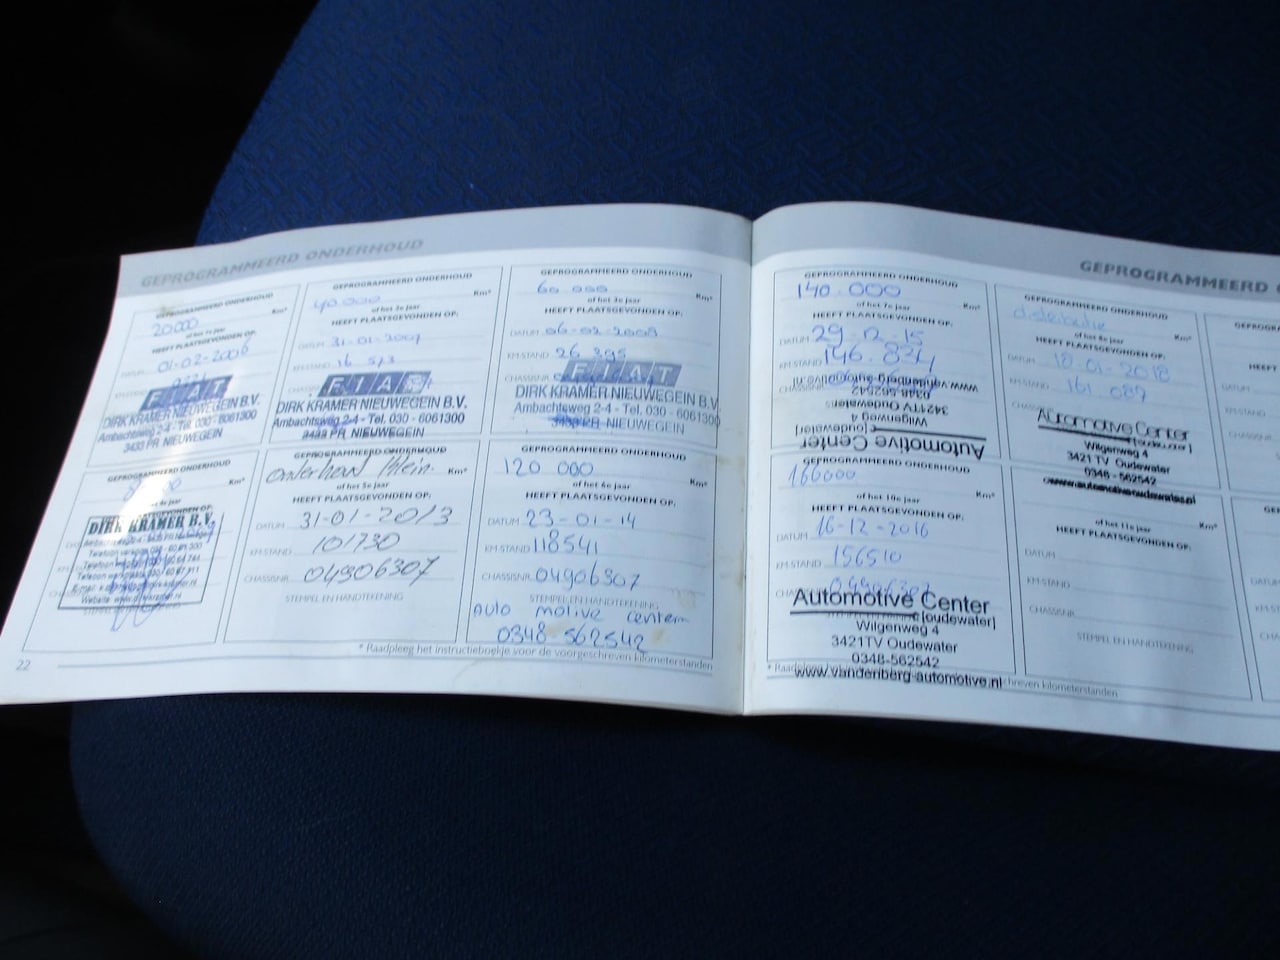 GEPROGRAMMEERD ONDERHOUD
GEPROGRAMMEERD ONDERHOUD
20000 Km*
of het 1e jaar
HEEFT PLAATSGEVONDEN OP:
DATUM 01-02-2006
FIAT
DIRK KRAMER NIEUWEGEIN B.V.
Ambachtsweg 2-4 - Tel. 030 - 6061300
3433 PR NIEUWEGEIN
GEPROGRAMMEERD ONDERHOUD
40.000 Km*
of het 2e jaar
HEEFT PLAATSGEVONDEN OP:
DATUM 31-01-2007
KM-STAND 16 573
FIAT
DIRK KRAMER NIEUWEGEIN B.V.
Ambachtsweg 2-4 - Tel. 030 - 6061300
3433 PR NIEUWEGEIN
GEPROGRAMMEERD ONDERHOUD
60.000 Km*
of het 3e jaar
HEEFT PLAATSGEVONDEN OP:
DATUM 06-02-2008
KM-STAND 26 395
CHASSISNR.
FIAT
DIRK KRAMER NIEUWEGEIN B.V.
Ambachtsweg 2-4 - Tel. 030 - 6061300
NIEUWEGEIN
GEPROGRAMMEERD ONDERHOUD
Km*
of het 4e jaar
DIRK KRAMER B.V.
GEPROGRAMMEERD ONDERHOUD
Onderhoud Klein Km*
of het 5e jaar
HEEFT PLAATSGEVONDEN OP:
DATUM 31-01-2013
KM-STAND 101730
CHASSISNR. 04906307
STEMPEL EN HANDTEKENING
GEPROGRAMMEERD ONDERHOUD
120 000 Km*
of het 6e jaar
HEEFT PLAATSGEVONDEN OP:
DATUM 23-01-14
KM-STAND 118541
CHASSISNR. 04906307
STEMPEL EN HANDTEKENING
Auto motive center
0348 562542
* Raadpleeg het instructieboekje voor de voorgeschreven kilometerstanden
22
GEPROGRAMMEERD
GEPROGRAMMEERD ONDERHOUD
140.000 Km*
of het 7e jaar
HEEFT PLAATSGEVONDEN OP:
DATUM 29.12.15
KM-STAND 146.824
CHASSISNR.
Automotive Center
[oudewater]
Wilgenweg 4
3421TV Oudewater
0348-562542
www.vandenberg-automotive.nl
GEPROGRAMMEERD ONDERHOUD
distributie Km*
of het 8e jaar
HEEFT PLAATSGEVONDEN OP:
DATUM 18-01-2018
KM-STAND 161.087
CHASSISNR.
Automotive Center
[oudewater]
Wilgenweg 4
3421 TV Oudewater
0348 - 562542
www.automotiveoudewater.nl
GEPROGRAMMEERD ONDERHOUD
166000 Km*
of het 10e jaar
HEEFT PLAATSGEVONDEN OP:
DATUM 16-12-2016
KM-STAND 156510
04906307
Automotive Center
[oudewater]
Wilgenweg 4
3421TV Oudewater
0348-562542
www.vandenberg-automotive.nl
GEPROGRAMMEERD ONDERHOUD
Km*
of het 11e jaar
HEEFT PLAATSGEVONDEN OP:
DATUM
KM-STAND
CHASSISNR.
STEMPEL EN HANDTEKENING
* Raadpleeg
kilometerstanden